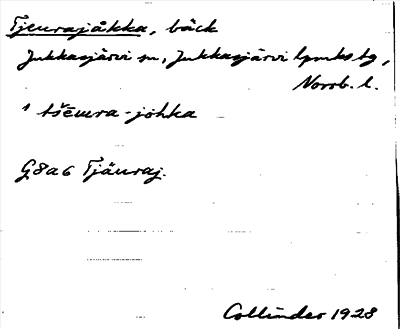 Tjeurajåkka, bäck
Jukkasjärvi sn, Jukkasjärvi lpmks tg,
Norrb. l.
G8a6 Tjäuraj.
Collinder 1928